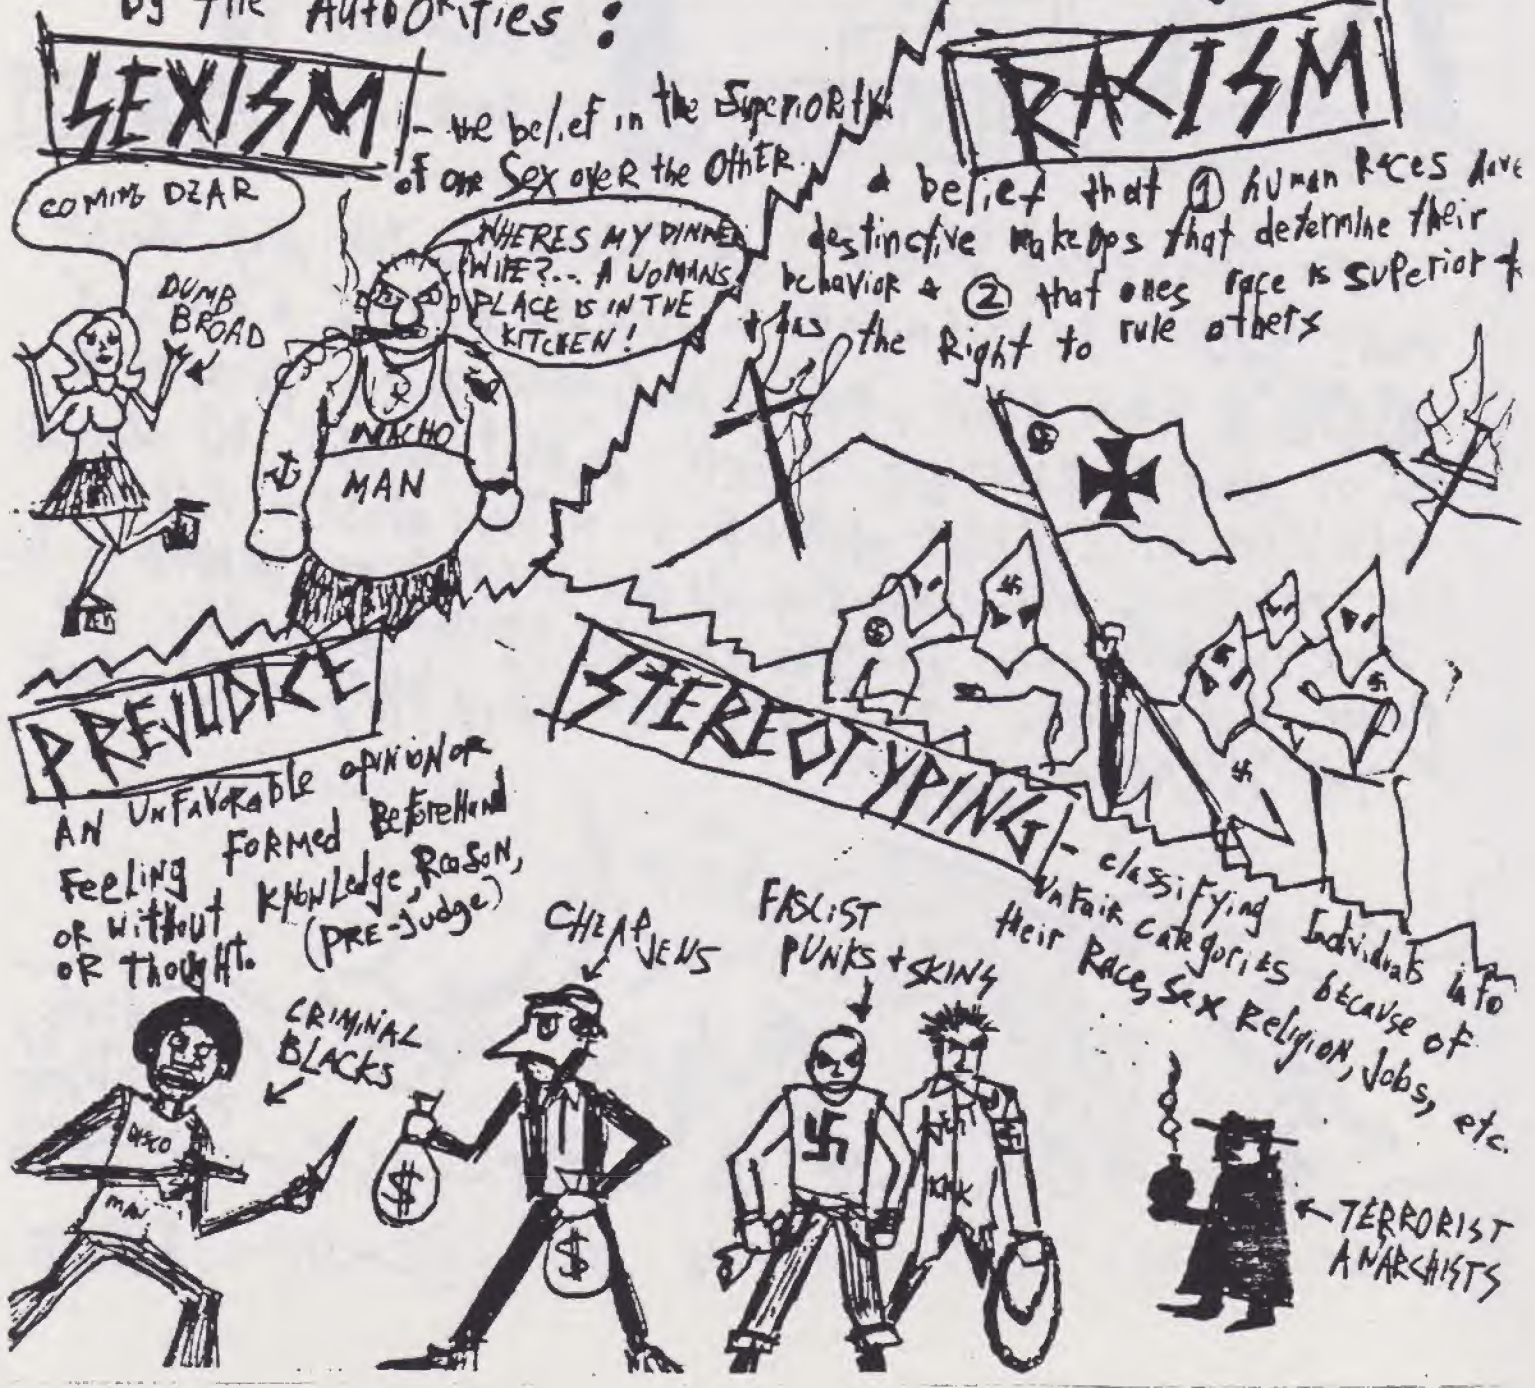 by THE AUTHORITIES :
SEXISM
- the belief in the Superiority
of one Sex over the OtHER.
COMING DEAR
DUMB
BROAD
WHERES MY DINNER
WIFE?... A WOMANS
PLACE IS IN THE
KITCHEN!
MACHO
MAN
RACISM
a belief that ① human Races have
destinctive makeups that determine their
behavior & ② that ones race is superior &
& has the Right to rule others
PREJUDICE
AN UNFAVORABLE OPINION OR
FEELING FORMED BeforeHand
OR without KNOWLedge, Reason,
OR thought. (PRE-Judge)
STEREOTYPING
- classifying Individuals into
unfair categories because of
their Race, Sex Religion, Jobs, etc.
CRIMINAL
BLACKS
DISCO
MAN
CHEAP
JEWS
$
$
FASCIST
PUNKS + SKINS
KKK
TERRORIST
ANARCHISTS